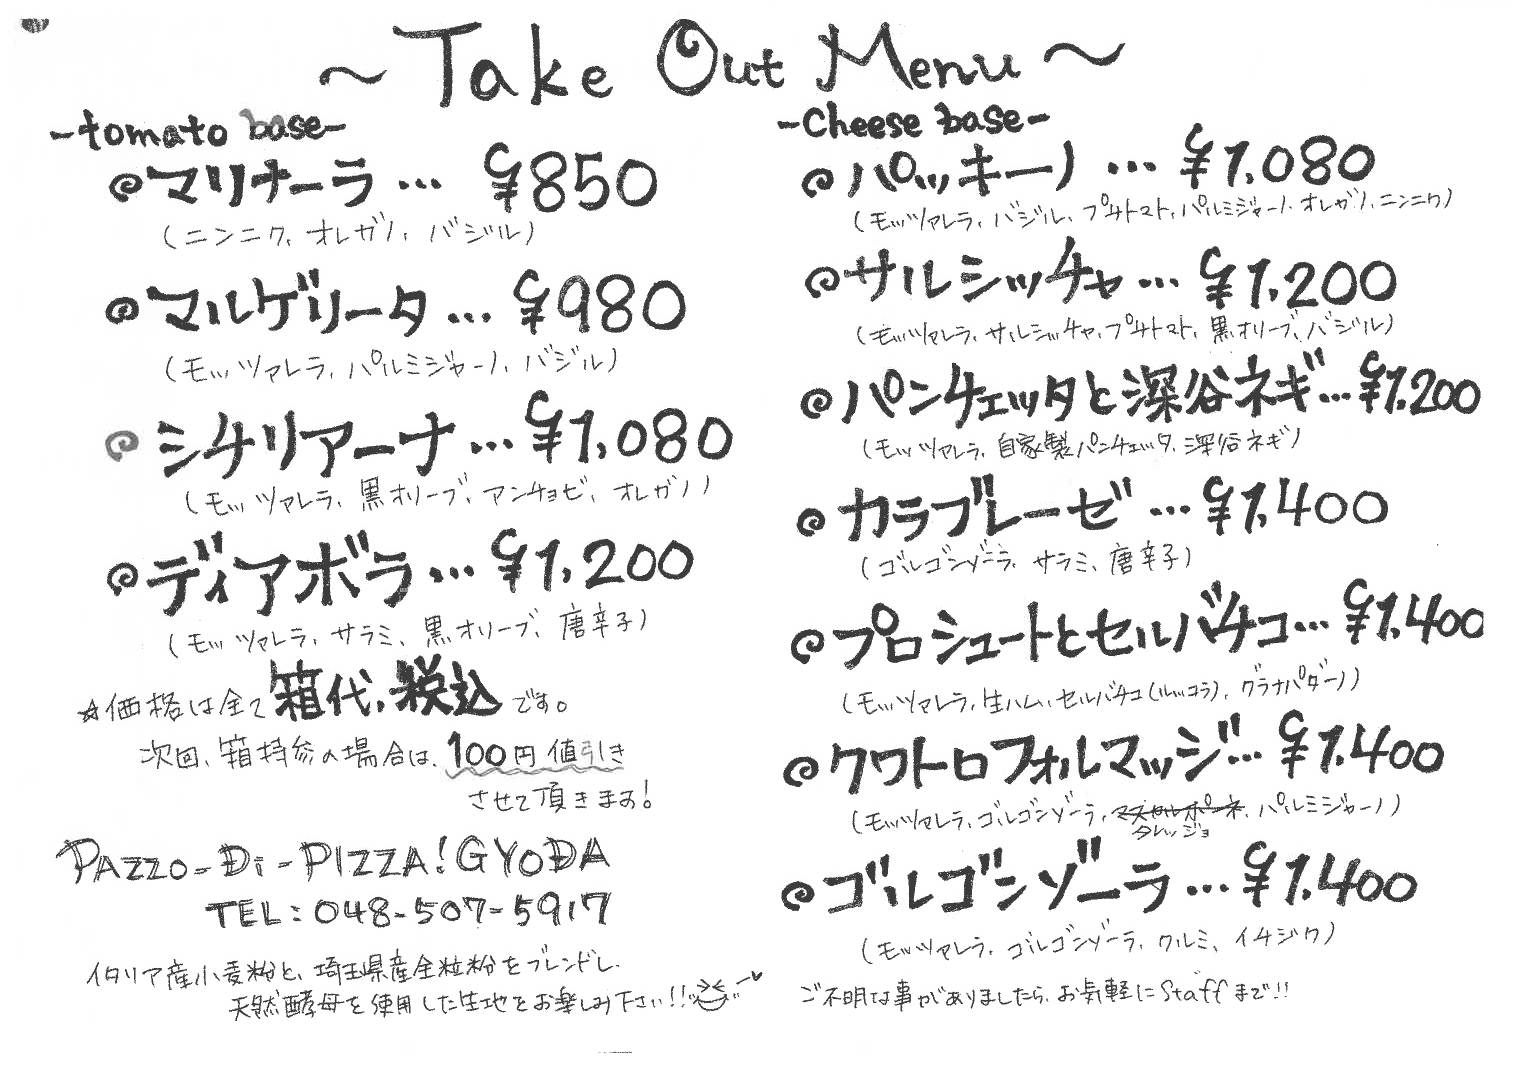 ～Take Out Menu～
-tomato base-
マリナーラ… ¥850
(ニンニク、オレガノ、バジル)
マルゲリータ… ¥980
(モッツァレラ、パルミジャーノ、バジル)
シチリアーナ…¥1,080
(モッツァレラ、黒オリーブ、アンチョビ、オレガノ)
ディアボラ…¥1,200
(モッツァレラ、サラミ、黒オリーブ、唐辛子)
☆価格は全て箱代、税込です。
次回、箱持参の場合は、100円値引き
させて頂きます!
PAZZO-Di-PIZZA!GYODA
TEL:048-507-5917
イタリア産小麦粉と、埼玉県産全粒粉をブレンドし、
天然酵母を使用した生地をお楽しみ下さい!!
-Cheese base-
パッキーノ…¥1,080
(モッツァレラ、バジル、プチトマト、パルミジャーノ、オレガノ、ニンニク)
サルシッチャ…¥1,200
(モッツァレラ、サルシッチャ、プチトマト、黒オリーブ、バジル)
パンチェッタと深谷ネギ…¥1,200
(モッツァレラ、自家製パンチェッタ、深谷ネギ)
カラブレーゼ…¥1,400
(ゴルゴンゾーラ、サラミ、唐辛子)
プロシュートとセルバチコ…¥1,400
(モッツァレラ、生ハム、セルバチコ(ルッコラ)、グラナパダーノ)
クワトロフォルマッジ…¥1,400
(モッツァレラ、ゴルゴンゾーラ、マスカルポーネ、パルミジャーノ)
タレッジョ
ゴルゴンゾーラ…¥1,400
(モッツァレラ、ゴルゴンゾーラ、クルミ、イチジク)
ご不明な事がありましたら、お気軽にStaffまで!!